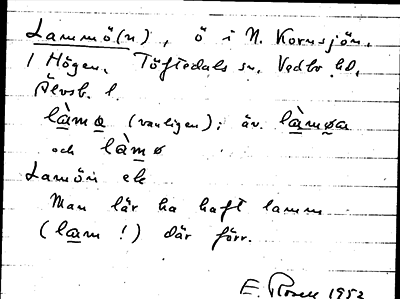 Lammö(n), ö i N. Kornsjön,
i Högen, Töftedals sn, Vedbo hd,
Älvsb. l.
là̱mo̱ (vanligen); äv. là̱møa
och là̱mø
Lamön ek
Man lär ha haft lamm
(la̱m!) där förr.
E. Rosell 1952